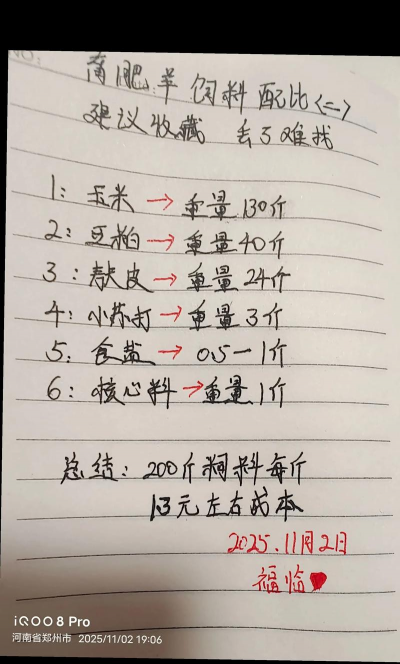 NO:
育肥羊饲料配比<二>
建议收藏 丢了难找
1: 玉米→重量130斤
2: 豆柏→重量40斤
3: 麸皮→重量24斤
4: 小苏打→重量3斤
5: 食盐→0.5一1斤
6: 核心料→重量1斤
总结: 200斤饲料每斤
1.3元左右成本
2025.11月2日
福临
iQOO 8 Pro
河南省郑州市 2025/11/02 19:06